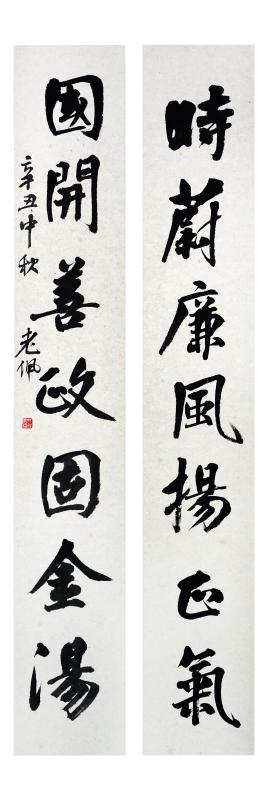 時蔚廉風揚正氣
國開善政固金湯
辛丑中秋 老佩